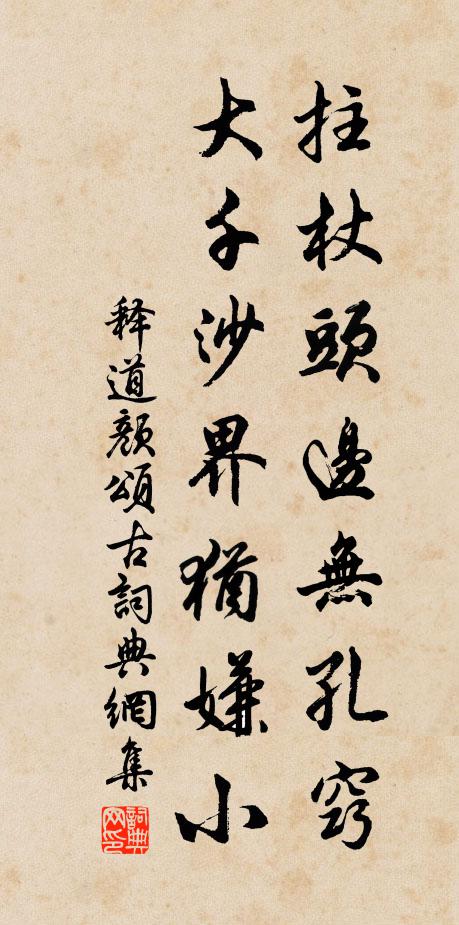 拄杖頭邊無孔窾
大千沙界猶嫌小
释道顏頌古詞典網集
詞典网印